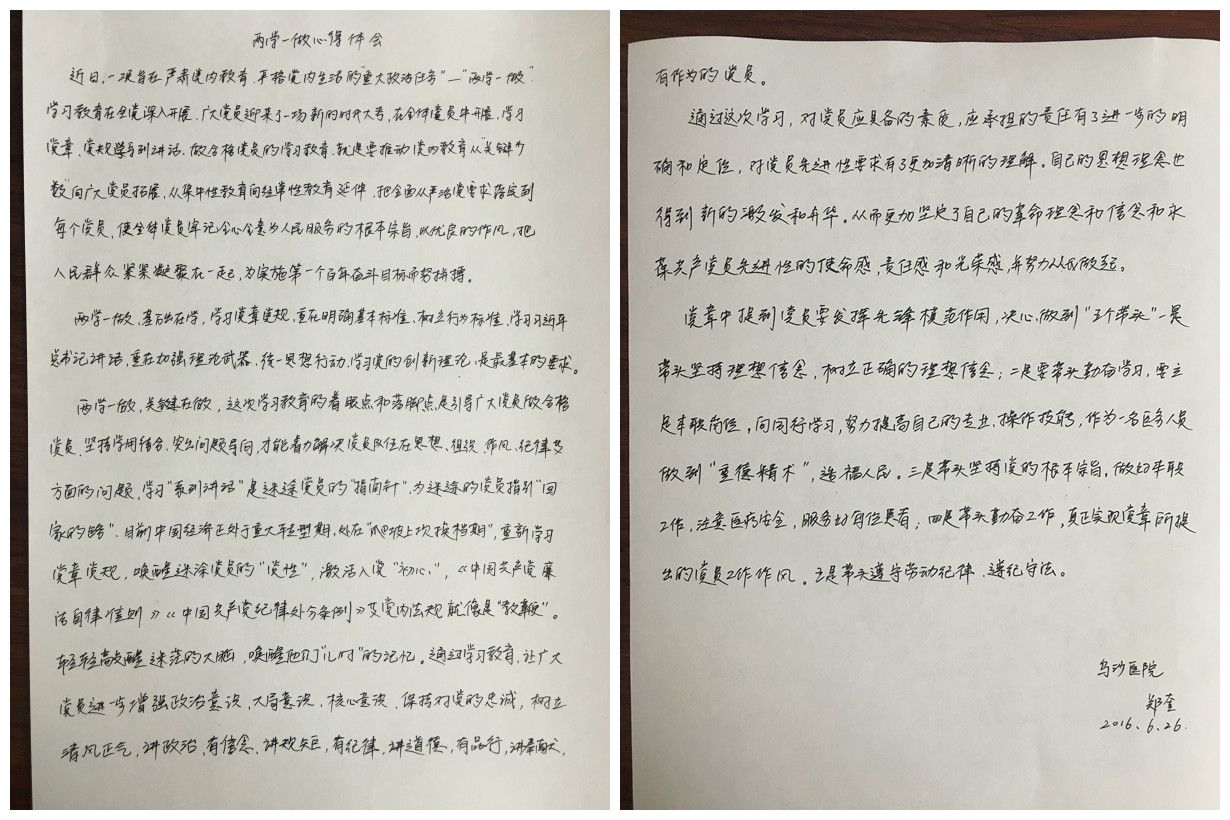 两学一做心得体会
近日,一项旨在严肃党内教育、严格党内生活的"重大政治任务"—"两学一做"
学习教育在全党深入开展。广大党员迎来了一场新的时代大考,在全体党员中开展,学习
党章、党规学系列讲话、做合格党员的学习教育,就是要推动党内教育从"关键少
数"向广大党员拓展,从集中性教育向经常性教育延伸,把全面从严治党要求落实到
每个党员,使全体党员牢记全心全意为人民服务的根本宗旨,以优良的作风,把
人民群众紧紧凝聚在一起,为实施第一个百年奋斗目标而努拼搏。
两学一做,基础在学,学习党章党规,重在明确基本标准、树立行为标准,学习习近平
总书记讲话,重在加强理论武器、统一思想行动,学习党的创新理论,是最基本的要求。
两学一做,关键在做,这次学习教育的着眼点和落脚点是引导广大党员做合格
党员,坚持学用结合,突出问题导向,才能着力解决党员队伍在思想、组织、作风、纪律等
方面的问题,学习"系列讲话"是迷途党员的"指南针",为迷途的党员指引"回
家的路"。目前中国经济正处于重大转型期,处在"爬坡上坎换档期",重新学习
党章党规,唤醒迷途党员的"党性",激活入党"初心",《中国共产党廉
洁自律准则》《中国共产党纪律处分条例》等党内法规就像是"教鞭"。
轻轻敲醒迷茫的大脑,唤醒他们"儿时"的记忆。通过学习教育,让广大
党员进一步增强政治意识、大局意识、核心意识、保持对党的忠诚,树立
清风正气,讲政治,有信念,讲规矩,有纪律,讲道德,有品行,讲奉献,
有作为的党员。
通过这次学习,对党员应具备的素质,应承担的责任有了进一步的明
确和定位,对党员先进性要求有了更加清晰的理解。自己的思想理念也
得到新的激发和升华。从而更加坚定了自己的革命理念和信念和永
葆共产党员先进性的使命感,责任感和光荣感,并努力从我做起。
党章中提到党员要发挥先锋模范作用,决心做到"五个带头"一是
带头坚持理想信念,树立正确的理想信念;二是要带头勤奋学习,要立
足本职岗位,向同行学习,努力提高自己的专业、操作技能,作为一名医务人员
做到"重德精术",造福人民。三是带头坚持党的根本宗旨,做好本职
工作,注意医疗安全,服务好每位患者;四是带头勤奋工作,真正实现党章所提
出的党员工作作风。五是带头遵守劳动纪律、遵纪守法。
乌沙医院
郑奎
2016.6.26.